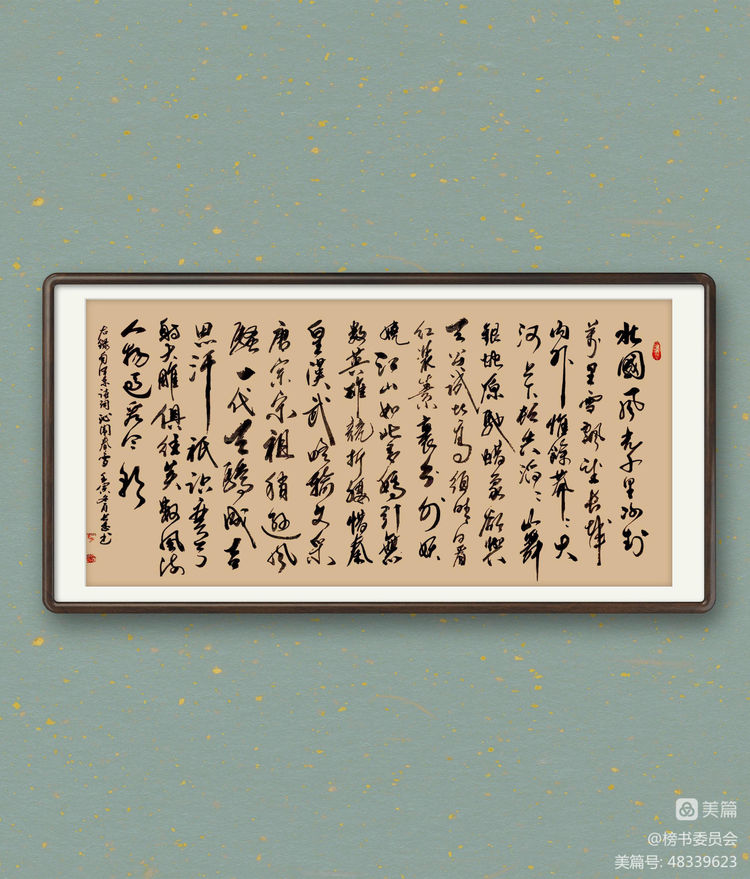 北國風光千里冰封
萬里雪飄望長城
內外惟餘莽々大
河上下頓失滔々山舞
銀蛇原馳蠟象欲與
天公試比高須晴日看
紅裝素裹分外妖
嬈江山如此多嬌引無
數英雄競折腰惜秦
皇漢武略輸文采
唐宗宋祖稍遜風
騷一代天驕成吉
思汗祇識彎弓
射大雕俱往矣數風流
人物還看今朝
右錄毛澤東詩詞沁園春雪壬寅
美篇
@榜书委员会
美篇号: 48339623